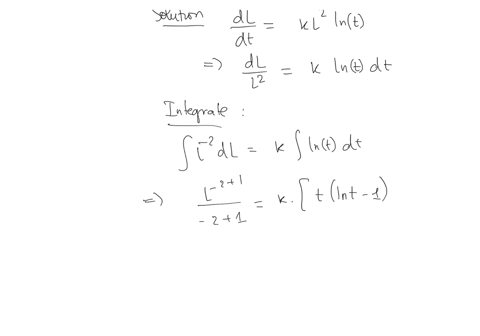 Solution dL/dt = kL² ln(t)
=> dL/L² = k ln(t) dt
Integrate :
∫ L⁻² dL = k ∫ ln(t) dt
=> L⁻²⁺¹/-2+1 = k . [ t (lnt - 1)